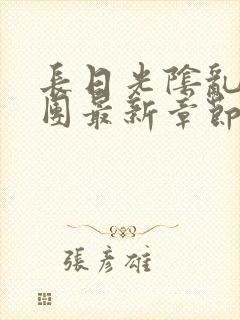 長日光陰亂
團最新章節
張彥雄